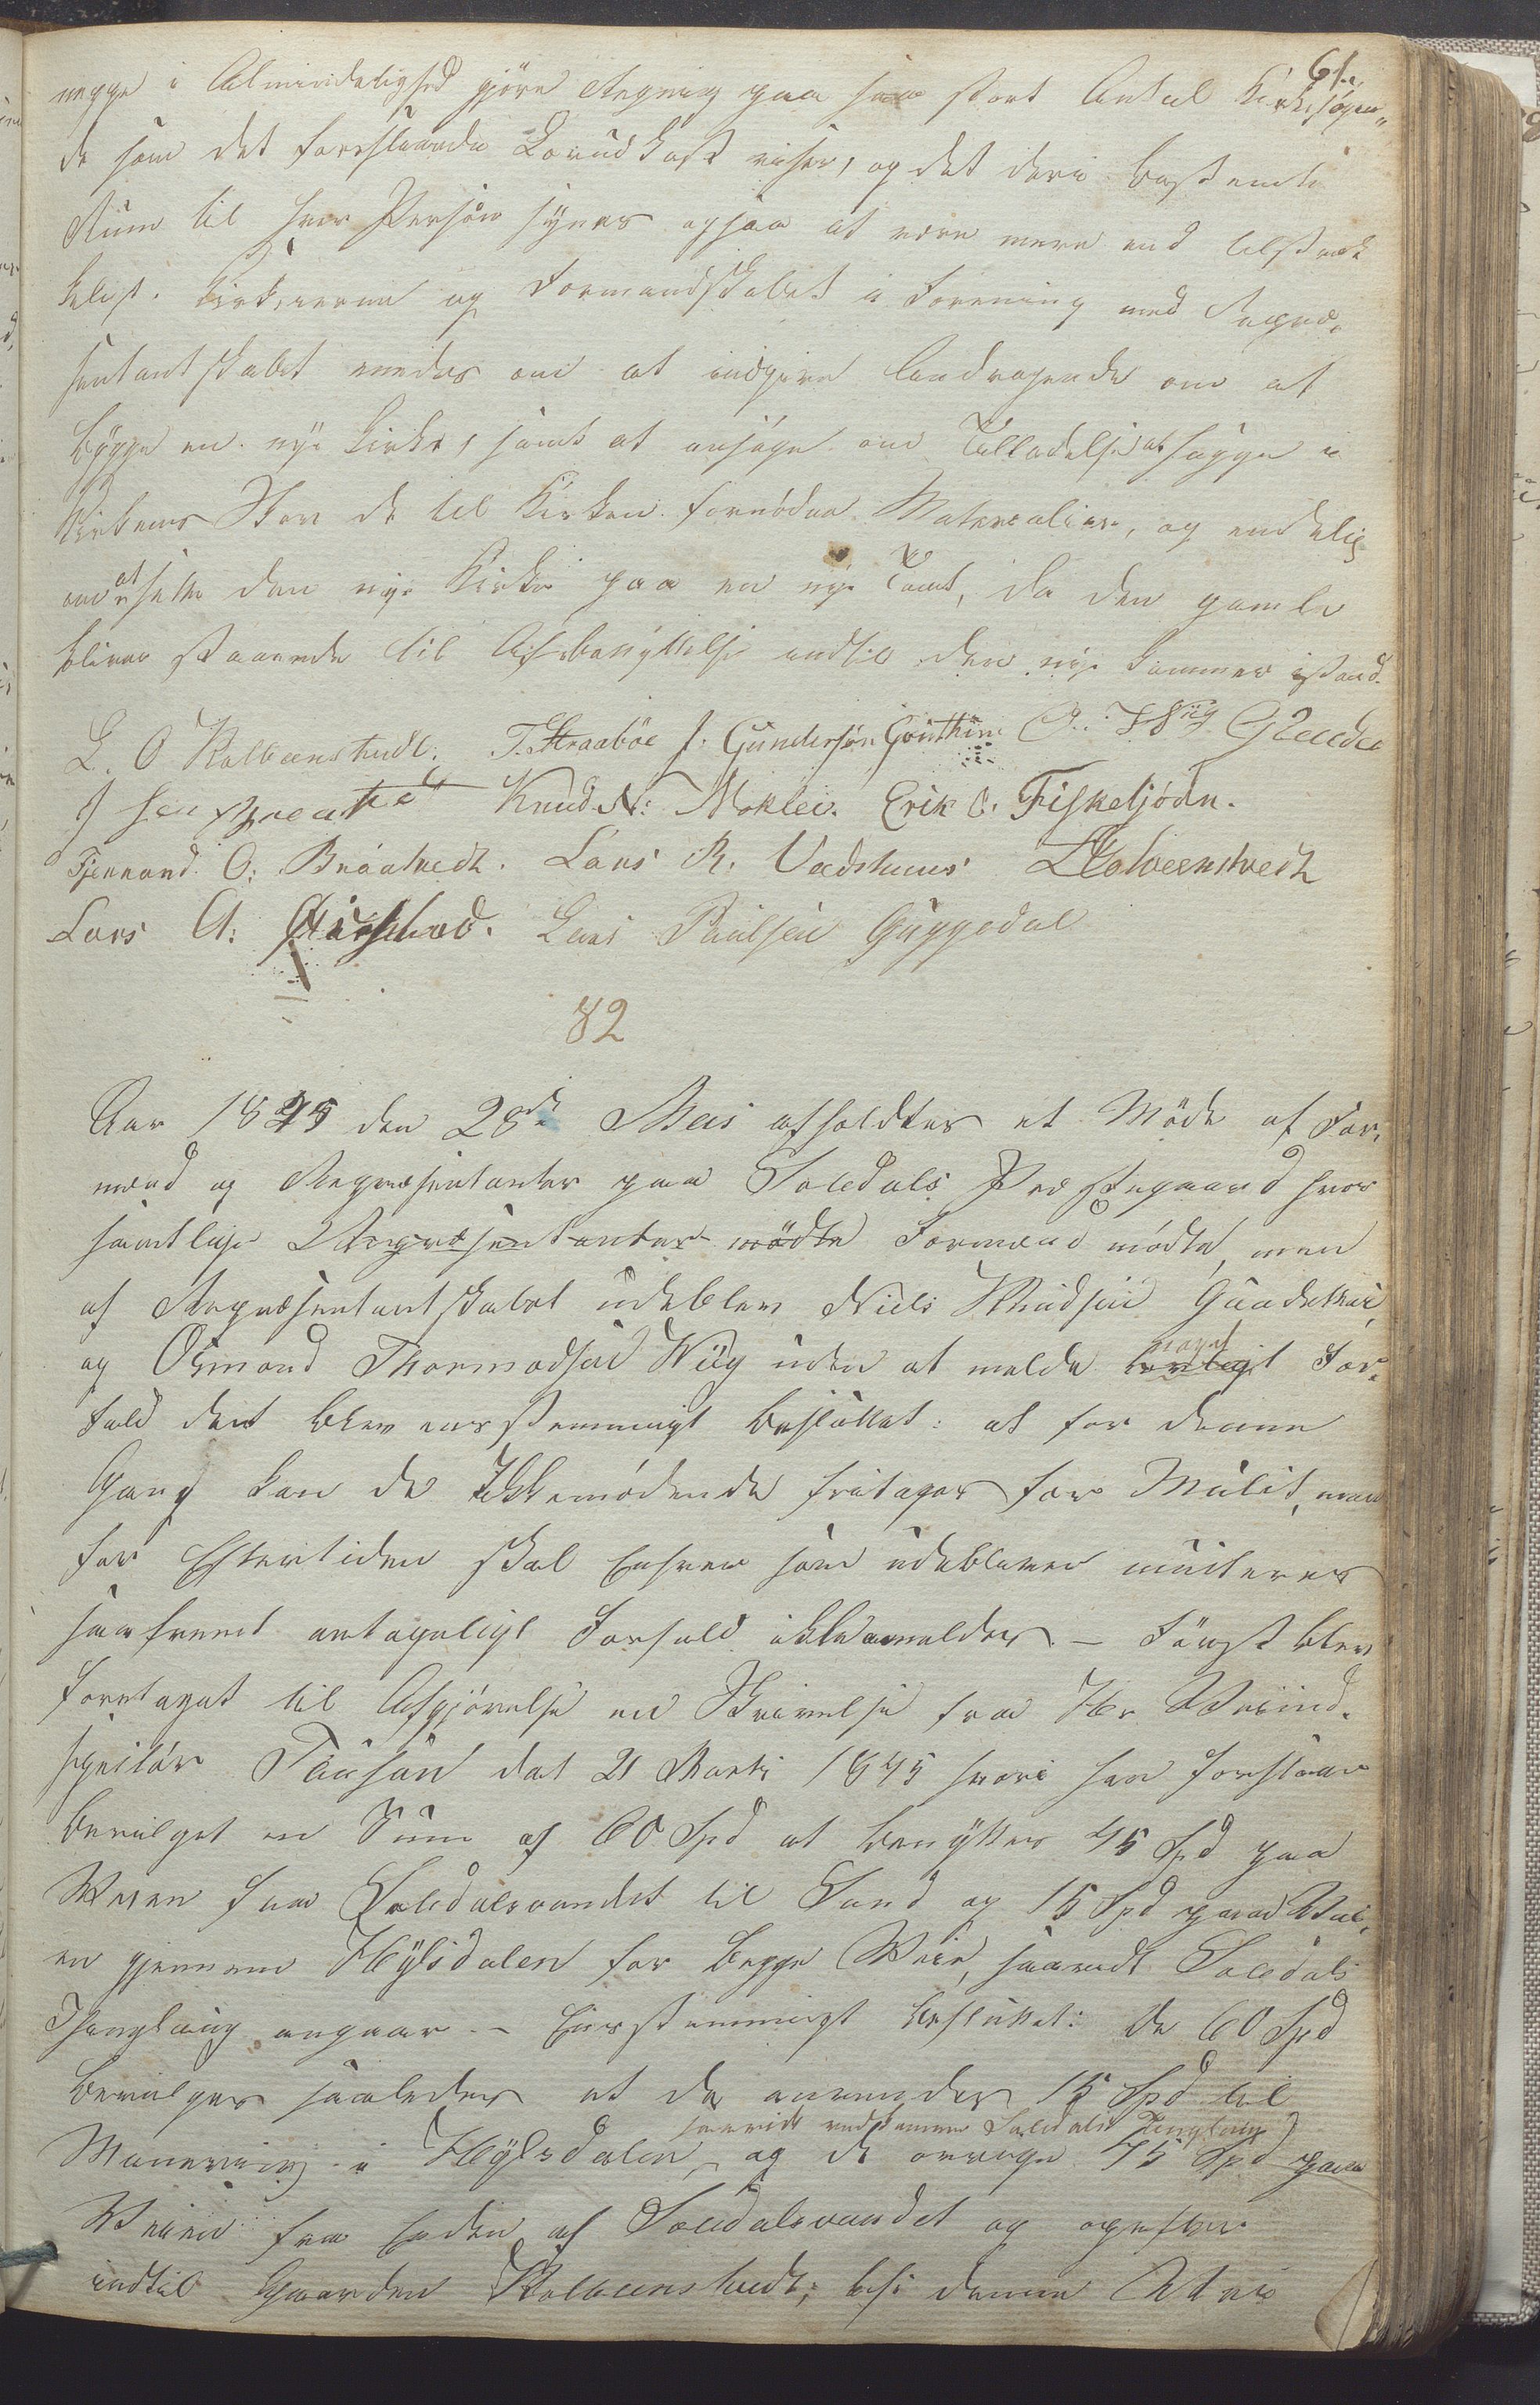 61.
neppe i Almindelighed gjöre Regning paa saa stort Antal Kirkesögen„
de som det foreslaaede Loveudkast viser, og det deri bestemte
Rum til hver Person synes ogsaa at være mere end tilstræk
keligt. Kirkeierne og Formandskabet i Forening med Repræ„
sentantskabet enedes om at indgive Andragende om at
bygge en nye Kirke, samt at ansöge om Tilladelse at hugge i
Kirkens Skov de til Kirken fornödne Materialier, og endelig
om at sætte den nye Kirke paa en nye Tomt, da den gamle
bliver staaende til Afbenyttelse indtil den nye kommer istand.
L. O Kolbeenstvedt. T. Straaböe J. Gundersön Gouthun O. T Wiig
Knud N: Moklei. Erik O: Fiskeljödn.
O: Bråatvedt. Lars R. Vadshuus LKolbeenstvedt
Lars A: Lars Poulsen Guggedal
82
Aar 1845 den 28de Mai afholdtes et Möde af For„
mænd og Repræsentanter paa Soledals Præstegaard hvor
samtlige Repræsentanter mödte Formænd mödte, men
af Repræsentantskabet udeblev Niels Knudsen
og Osmond Thormodsen Wiig uden at melde noget For„
fald det blev eenstemmigt besluttet: at for denne
Gang kan de Ikkemödende fritages for Mulct, men
for Eftertiden skal Enhver som udebliver mulcteres
saafremt antageligt Forfald ikke anmeldes. – Först blev
foretaget til Afgjörelse en Skrivelse fra Hr Veiind„
specteur dat 21 Marts 1845 hvori han foreslaar
bevilget en Sum af 60 Spd at benyttes 45 Spd paa
Veien fra Soledalsvandet til Sand og 15 Spd paa Vei„
en gjennem Hylsdalen for begge Veie, saavidt Soledals
Thinglaug angaar. – Eenstemmigt besluttet: De 60 Spd
bevilges saaledes at de anvendes 15 Spd til
saavidt vedkommer Soledals Thinglaug
i Hylsdalen, og de övrige 45 Spd paa
Veien fra Enden af Soledalsvandet og
indtil Gaarden Kolbeenstvedt, hvis denne Vei